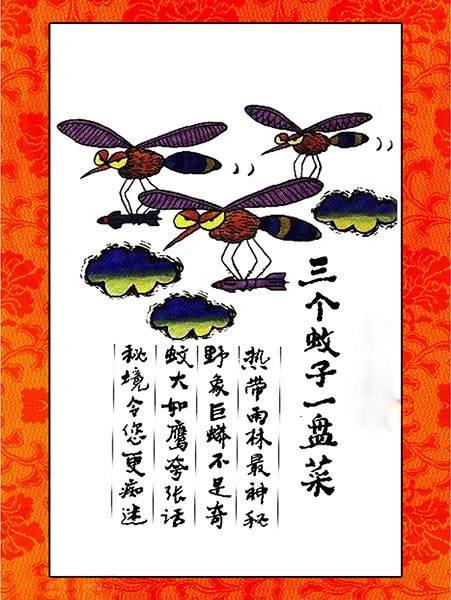 三个蚊子一盘菜
热带雨林最神秘
野象巨蟒不足奇
蚊大如鹰夸张话
秘境令您更痴迷